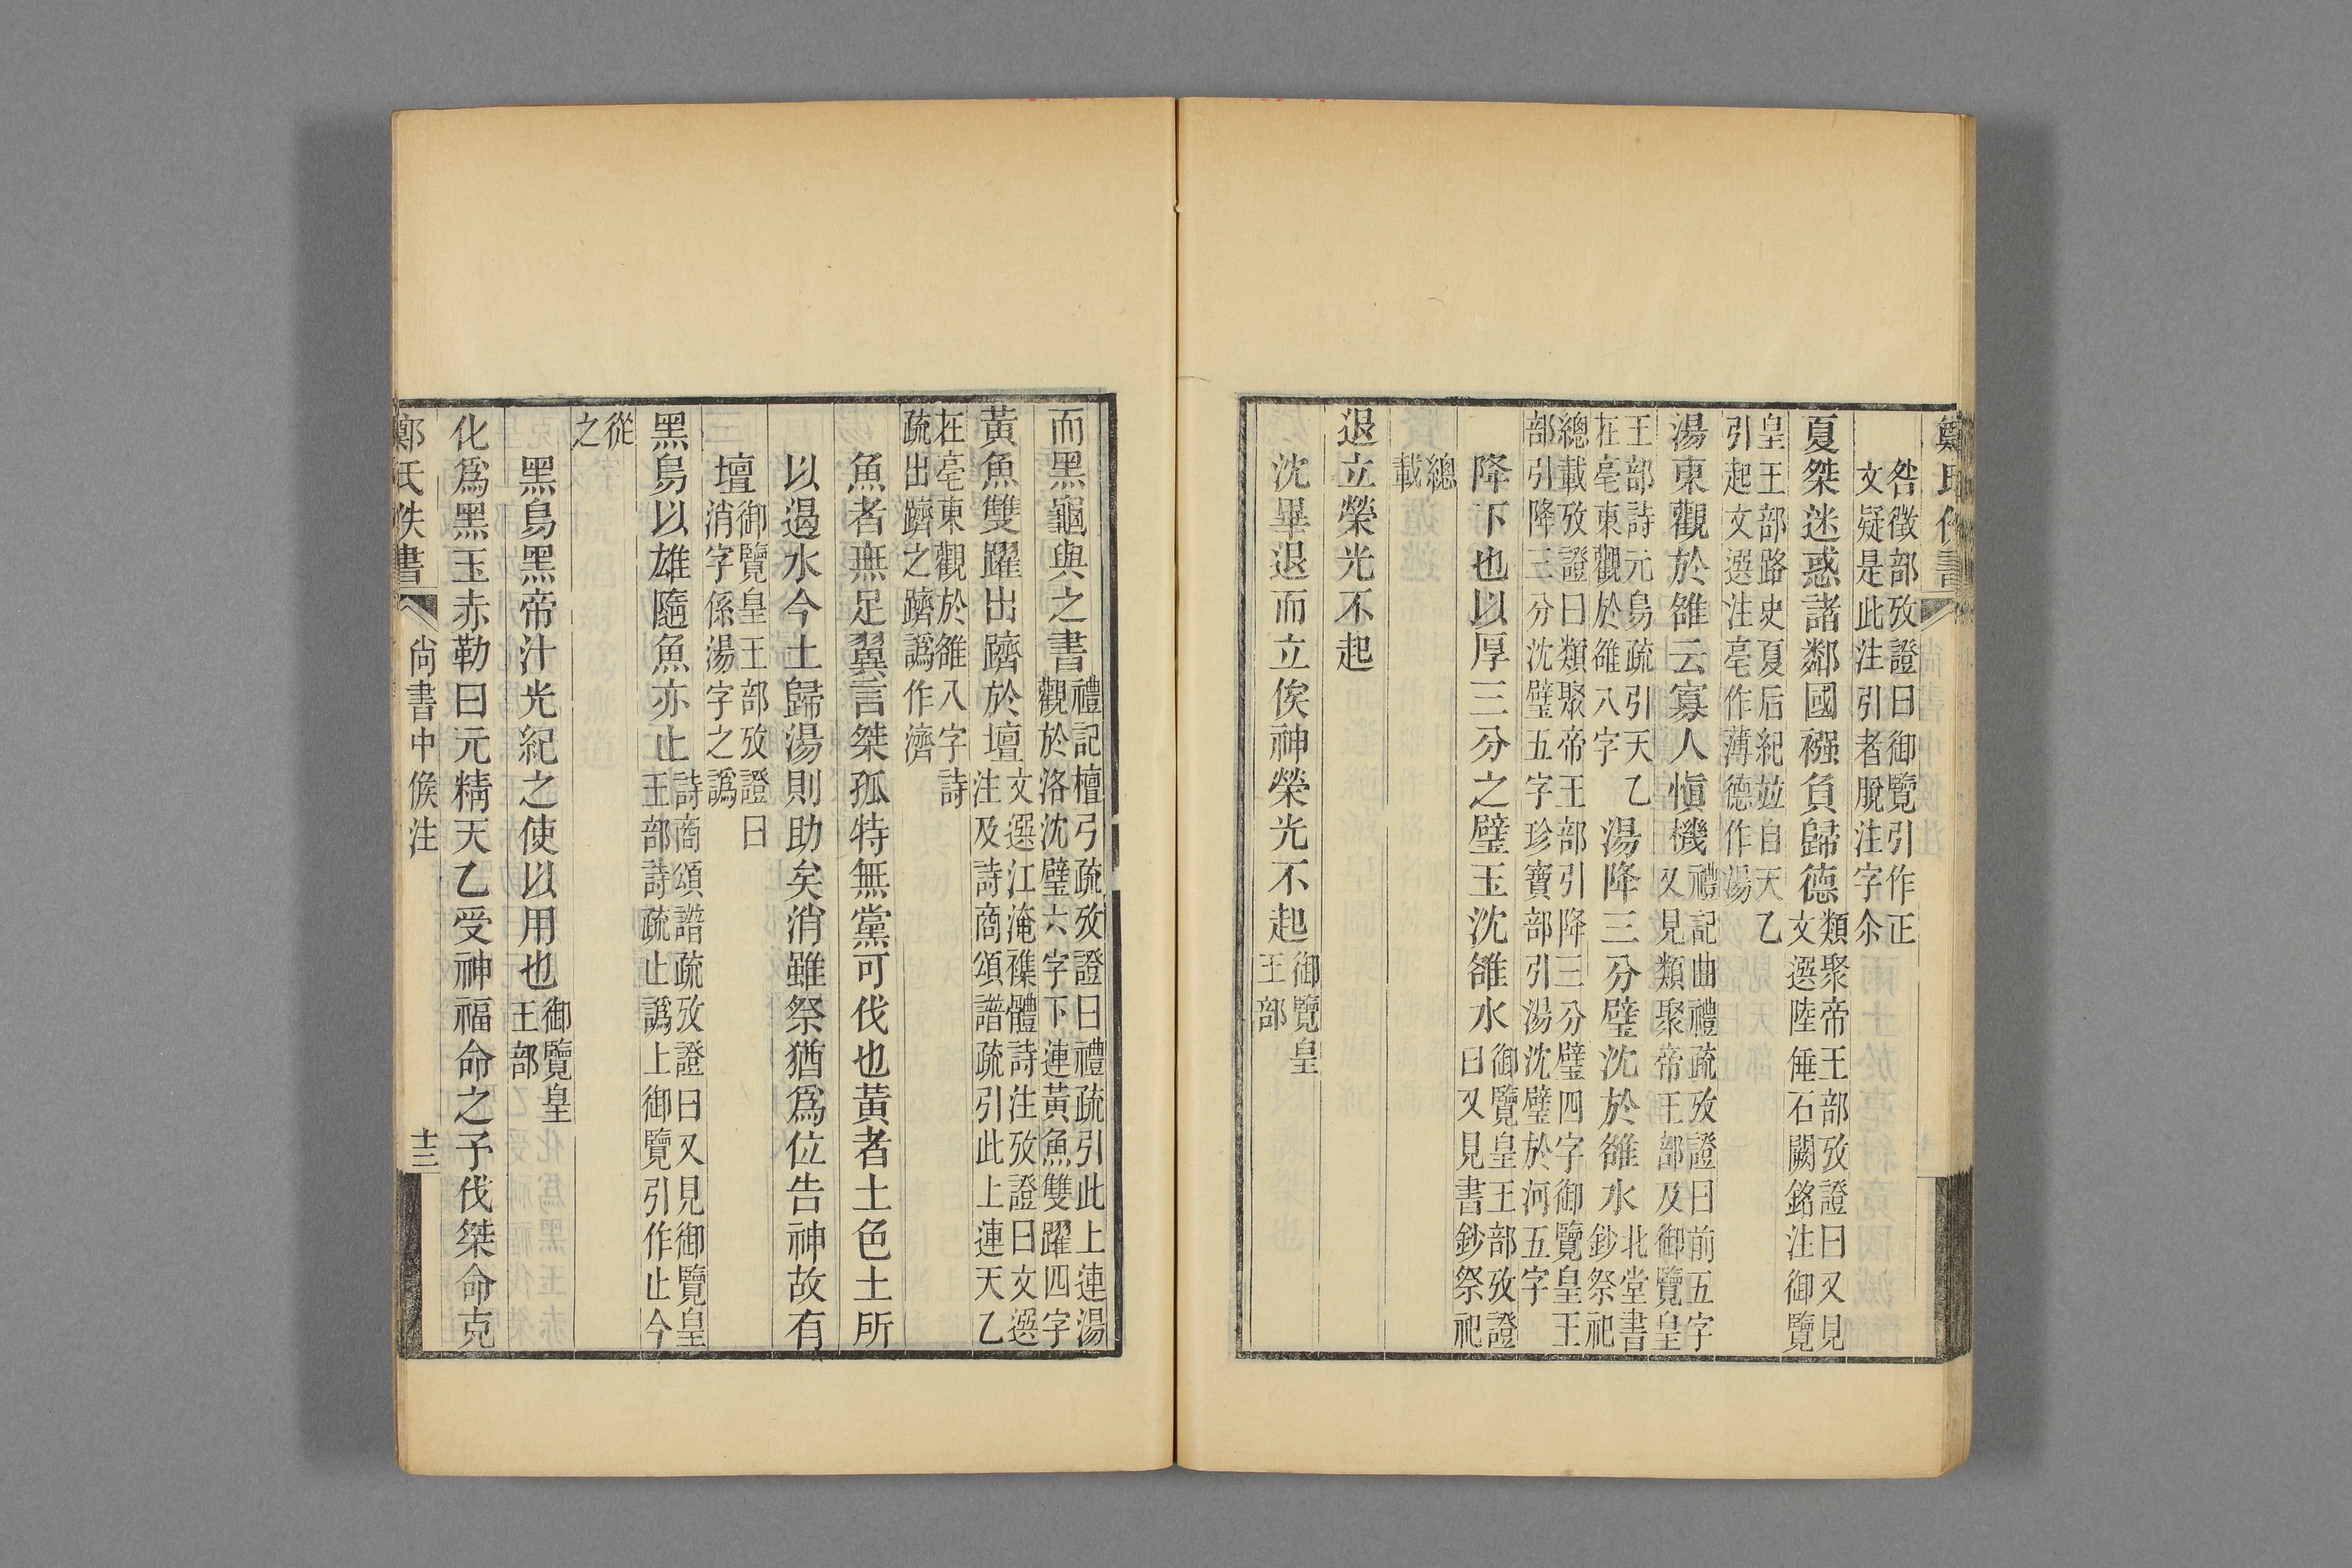 鄭氏佚書
咎徵部攷證曰御覽引作正
文疑是此注引者脫注字尒
夏桀迷惑諸鄰國襁負歸德類聚帝王部攷證曰又見文選陸倕石闕銘注御覽
皇王部路史夏后紀竝自天乙
引起文選注亳作薄德作湯
湯東觀於雒云寡人愼機禮記曲禮疏攷證曰前五字又見類聚帝王部及御覽皇
王部詩元鳥疏引天乙
在亳東觀於雒八字
湯降三分璧沈於雒水北堂書鈔祭祀
總載攷證曰類聚帝王部引降三分璧四字御覽皇王
部引降三分沈璧五字珍寶部引湯沈璧於河五字
降下也以厚三分之璧玉沈雒水御覽皇王部攷證曰又見書鈔祭祀
總
載
退立榮光不起
沈畢退而立俟神榮光不起御覽皇王部
而黑龜與之書禮記檀弓疏攷證曰禮疏引此上連湯觀於洛沈璧六字下連黃魚雙躍四字
黃魚雙躍出躋於壇文選江淹襍體詩注攷證曰文選注及詩商頌譜疏引此上連天乙
在亳東觀於雒八字詩
疏出躋之躋譌作濟
魚者無足翼言桀孤特無黨可伐也黃者土色土所
以遏水今土歸湯則助矣消雖祭猶爲位告神故有
壇御覽皇王部攷證曰消字係湯字之譌
黑鳥以雄隨魚亦止詩商頌譜疏攷證曰又見御覽皇王部詩疏止譌上御覽引作止今
從
之
黑鳥黑帝汁光紀之使以用也御覽皇王部
化爲黑玉赤勒曰元精天乙受神福命之予伐桀命克
鄭氏佚書 尙書中候注 十三